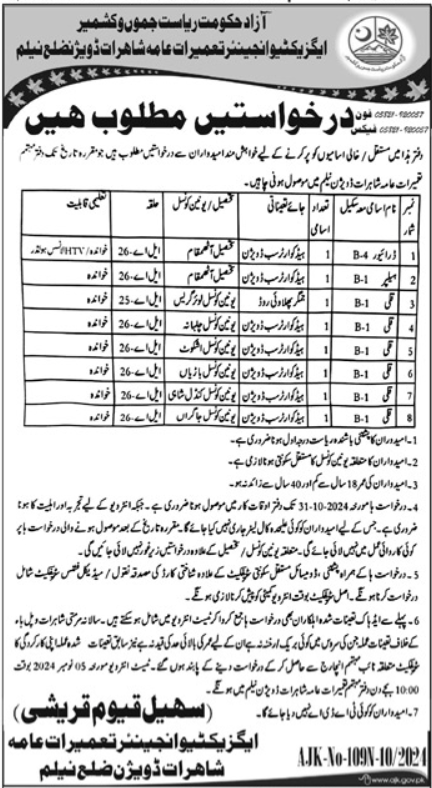 آزاد حکومت ریاست جموں و کشمیر
ایگزیکٹیو انجینئر تعمیرات عامہ شاہرات ڈویژن ضلع نیلم
درخواستیں مطلوب ہیں
فون 05821-920057
فیکس 05821-920057
دفتر ہذا میں مستقل / خالی اسامیوں کو پر کرنے کے لیے خواہش مند امیدواران سے درخواستیں مطلوب ہیں جو مقررہ تاریخ تک دفتر مہتمم
تعمیرات عامہ شاہرات ڈویژن نیلم میں موصول ہونی چاہیں۔
نمبر شمار نام اسامی معہ سکیل تعداد اسامی جائے تعیناتی تحصیل / یونین کونسل حلقہ تعلیمی قابلیت
1 ڈرائیور B-4 1 ہیڈ کوارٹر سب ڈویژن تحصیل آٹھمقام ایل اے-26 خواندہ / HTV لائسنس ہولڈر
2 ہیلپر B-1 1 ہیڈ کوارٹر سب ڈویژن تحصیل آٹھمقام ایل اے-26 خواندہ
3 قلی B-1 1 پھلاوئی روڈ یونین کونسل لوئر گریس ایل اے-25 خواندہ
4 قلی B-1 1 ہیڈ کوارٹر سب ڈویژن یونین کونسل چلہانہ ایل اے-26 خواندہ
5 قلی B-1 1 ہیڈ کوارٹر سب ڈویژن یونین کونسل اشکوٹ ایل اے-26 خواندہ
6 قلی B-1 1 ہیڈ کوارٹر سب ڈویژن یونین کونسل باڑیاں ایل اے-26 خواندہ
7 قلی B-1 1 ہیڈ کوارٹر سب ڈویژن یونین کونسل کنڈل شاہی ایل اے-26 خواندہ
8 قلی B-1 1 ہیڈ کوارٹر سب ڈویژن یونین کونسل جاگراں ایل اے-26 خواندہ
1۔ امیدواران کا پشتنی باشندہ ریاست درجہ اول ہونا ضروری ہے۔
2۔ امیدواران کا متعلقہ یونین کونسل کا مستقل سکونتی ہونا لازمی ہے۔
3۔ امیدواران کی عمر 18 سال سے کم اور 40 سال سے زائد نہ ہو۔
4۔ درخواست ہا مورخہ 31-10-2024 تک دفتر اوقات کار میں موصول ہونا ضروری ہے۔ جبکہ انٹرویو کے لیے تجربہ اور اہلیت کا ہونا
ضروری ہے۔ جس کے لیے امیدواران کو کوئی علیحدہ کال لیٹر جاری نہیں کیا جائے گا۔ مقررہ تاریخ کے بعد موصول ہونے والی درخواست ہا پر
کوئی کاروائی عمل میں نہیں لائی جائے گی۔ متعلقہ یونین کونسل / تحصیل کے علاوہ درخواستیں زیر غور نہیں لائی جائیں گی۔
5۔ درخواست ہا کے ہمراہ پشتنی، ڈومیسائل مستقل سکونتی سرٹیفکیٹ کے علاوہ شناختی کارڈ کی مصدقہ نقول / میڈیکل فٹنس سرٹیفکیٹ شامل
درخواست کرنا ہونگے۔ اصل سرٹیفکیٹ بوقت انٹرویو کمیٹی کو پیش کرنا لازمی ہونگے۔
6۔ پہلے سے ایڈہاک تعینات شدہ اہلکاران بھی درخواست ہا جمع کروا کر ٹیسٹ انٹرویو میں شامل ہو سکتے ہیں۔ سالانہ مرمتی شاہرات و پل ہاء
کے خلاف تعینات عملہ جن کی سروس میں کوئی بریک اور رخنہ نہ ہے ان کے لیے عمر کی بالائی حد کی قید نہ ہے نیز سابق تعینات شدہ عملہ اپنی کارکردگی کا
سرٹیفکیٹ متعلقہ نائب مہتمم انچارج سے حاصل کر کے درخواست دینے کے پابند ہوں گے۔ ٹیسٹ انٹرویو مورخہ 05 نومبر 2024 بوقت
10:00 بجے دن دفتر مہتمم تعمیرات عامہ شاہرات ڈویژن نیلم میں ہونگے۔
7۔ امیدواران کو کوئی ٹی اے ڈی اے نہیں دیا جائے گا۔
سہیل قیوم قریشی
ایگزیکٹیو انجینئر تعمیرات عامہ
شاہرات ڈویژن ضلع نیلم
AJK-No-109N-10/2024
www.ajk.gov.pk